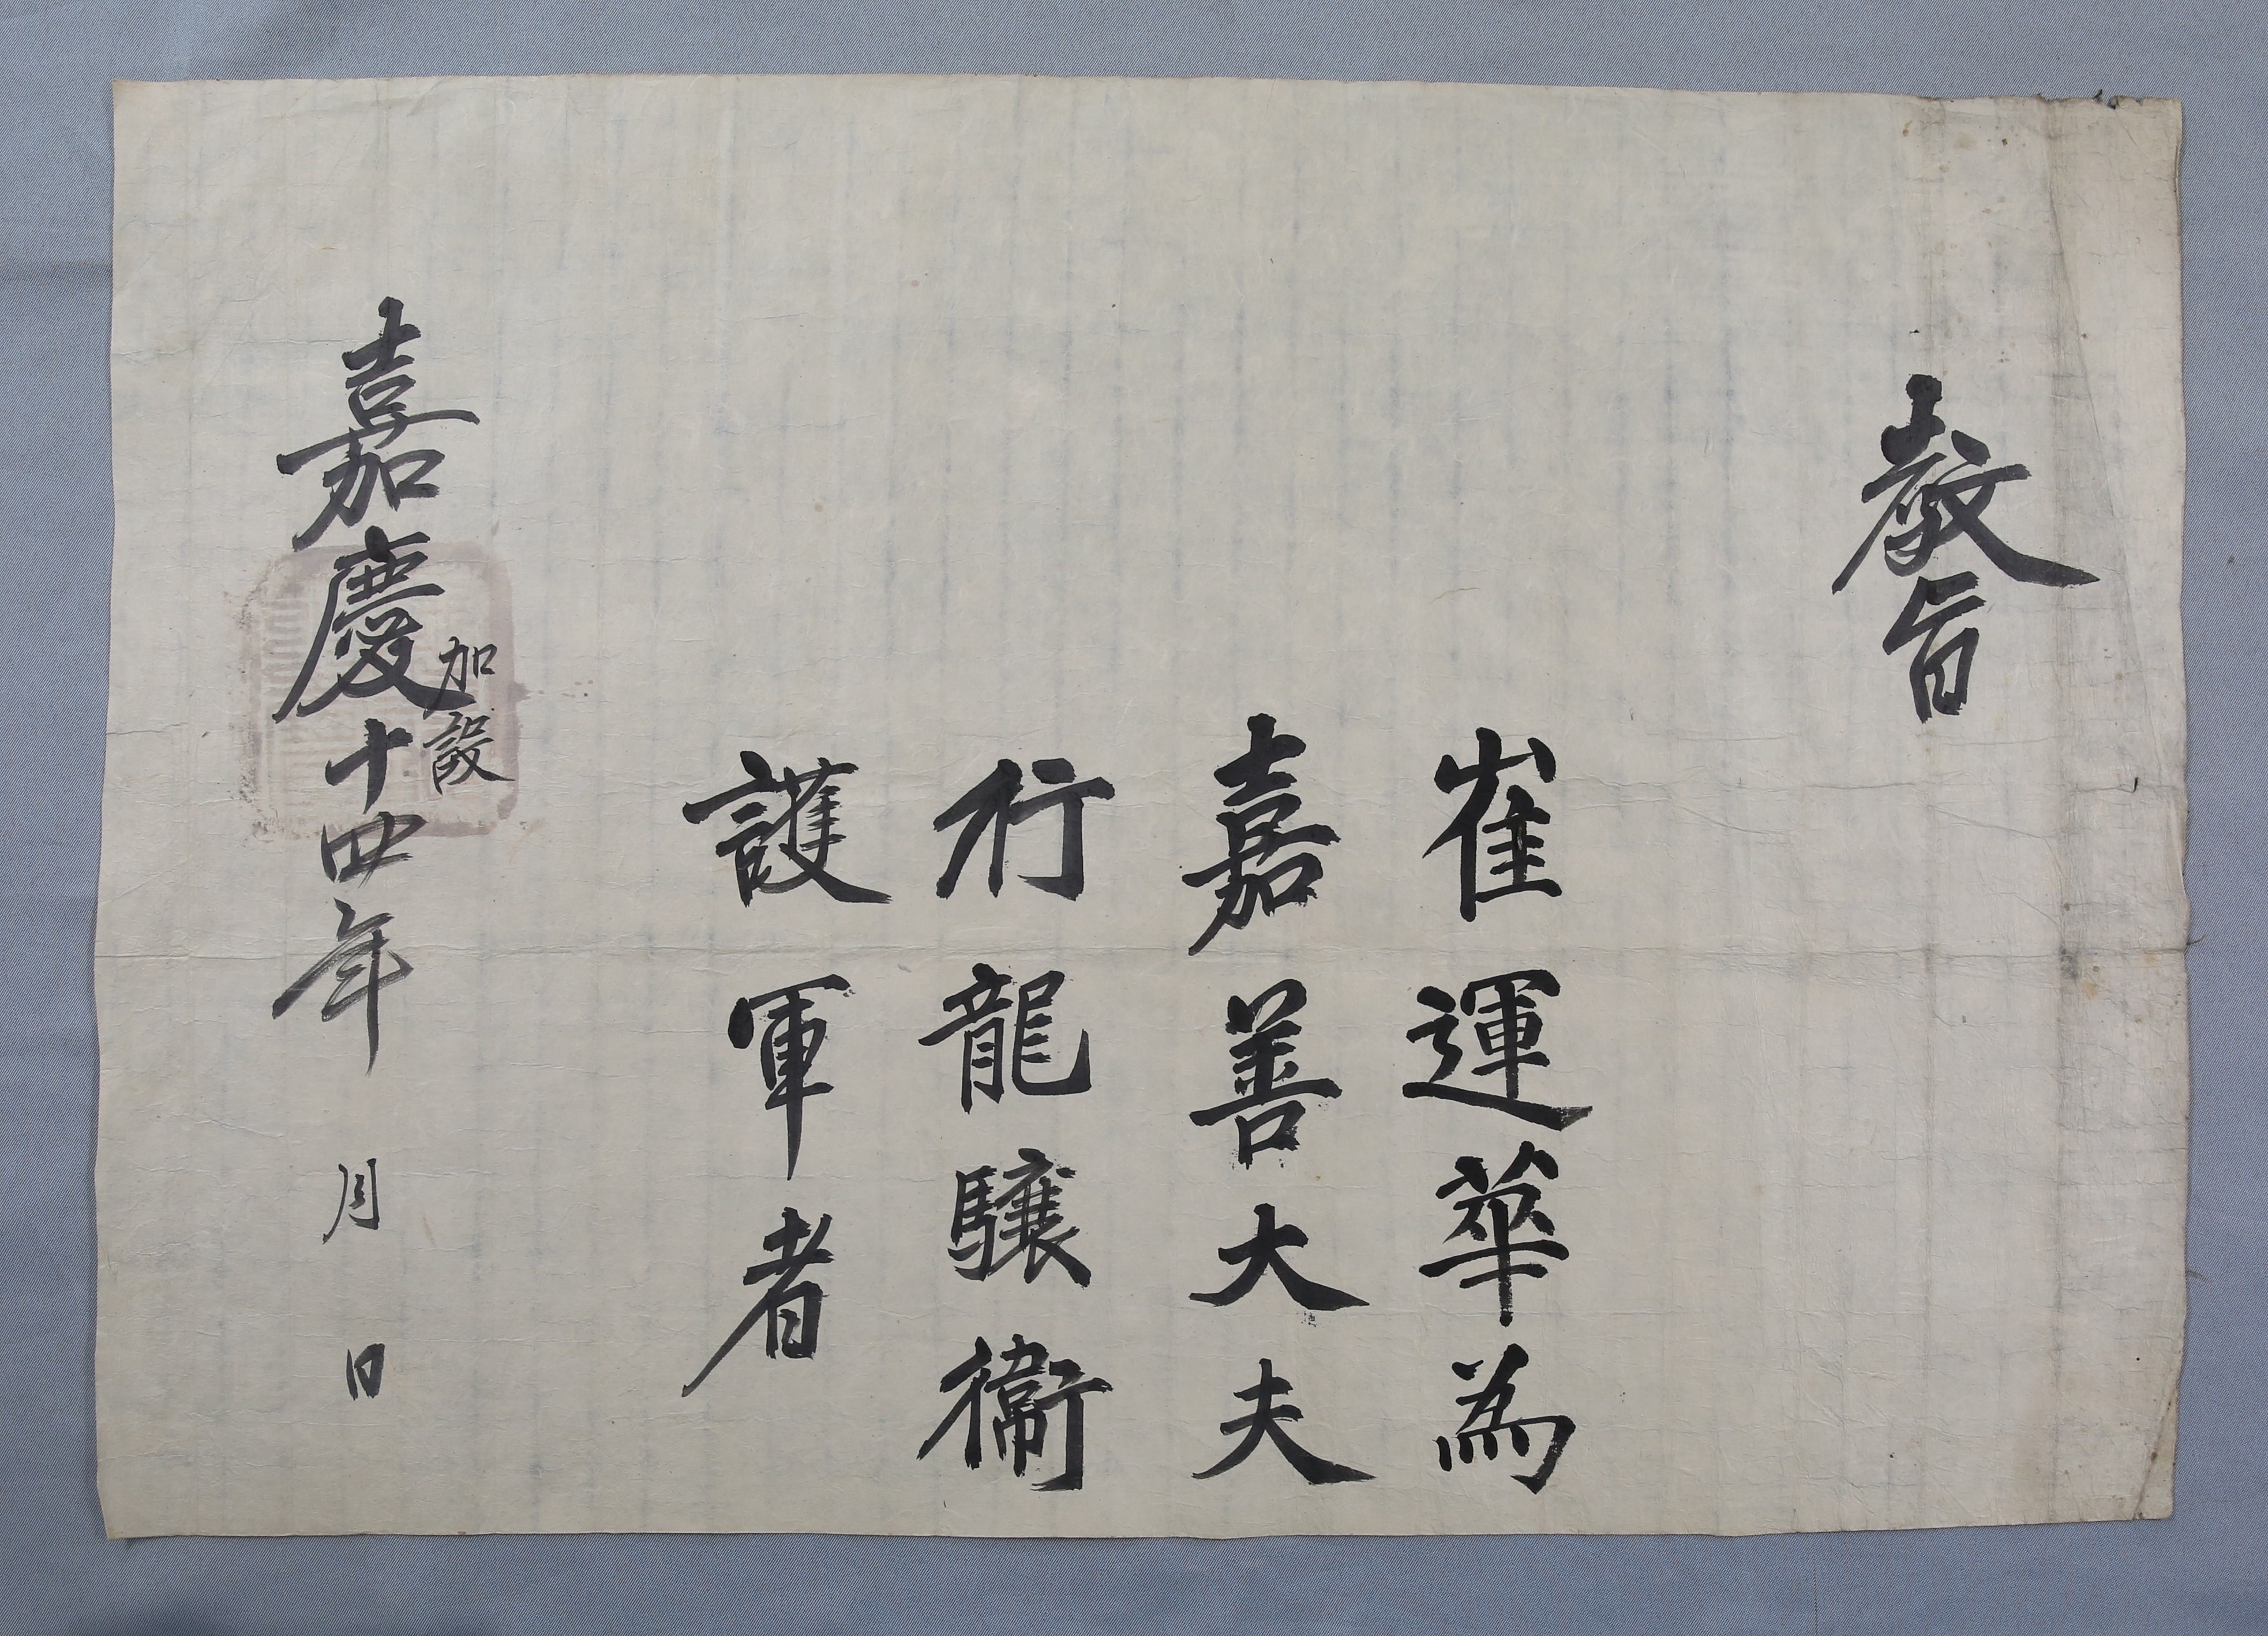 教旨
崔運華為
嘉善大夫
行龍驤衛
護軍者
嘉慶十四年 月 日
加設